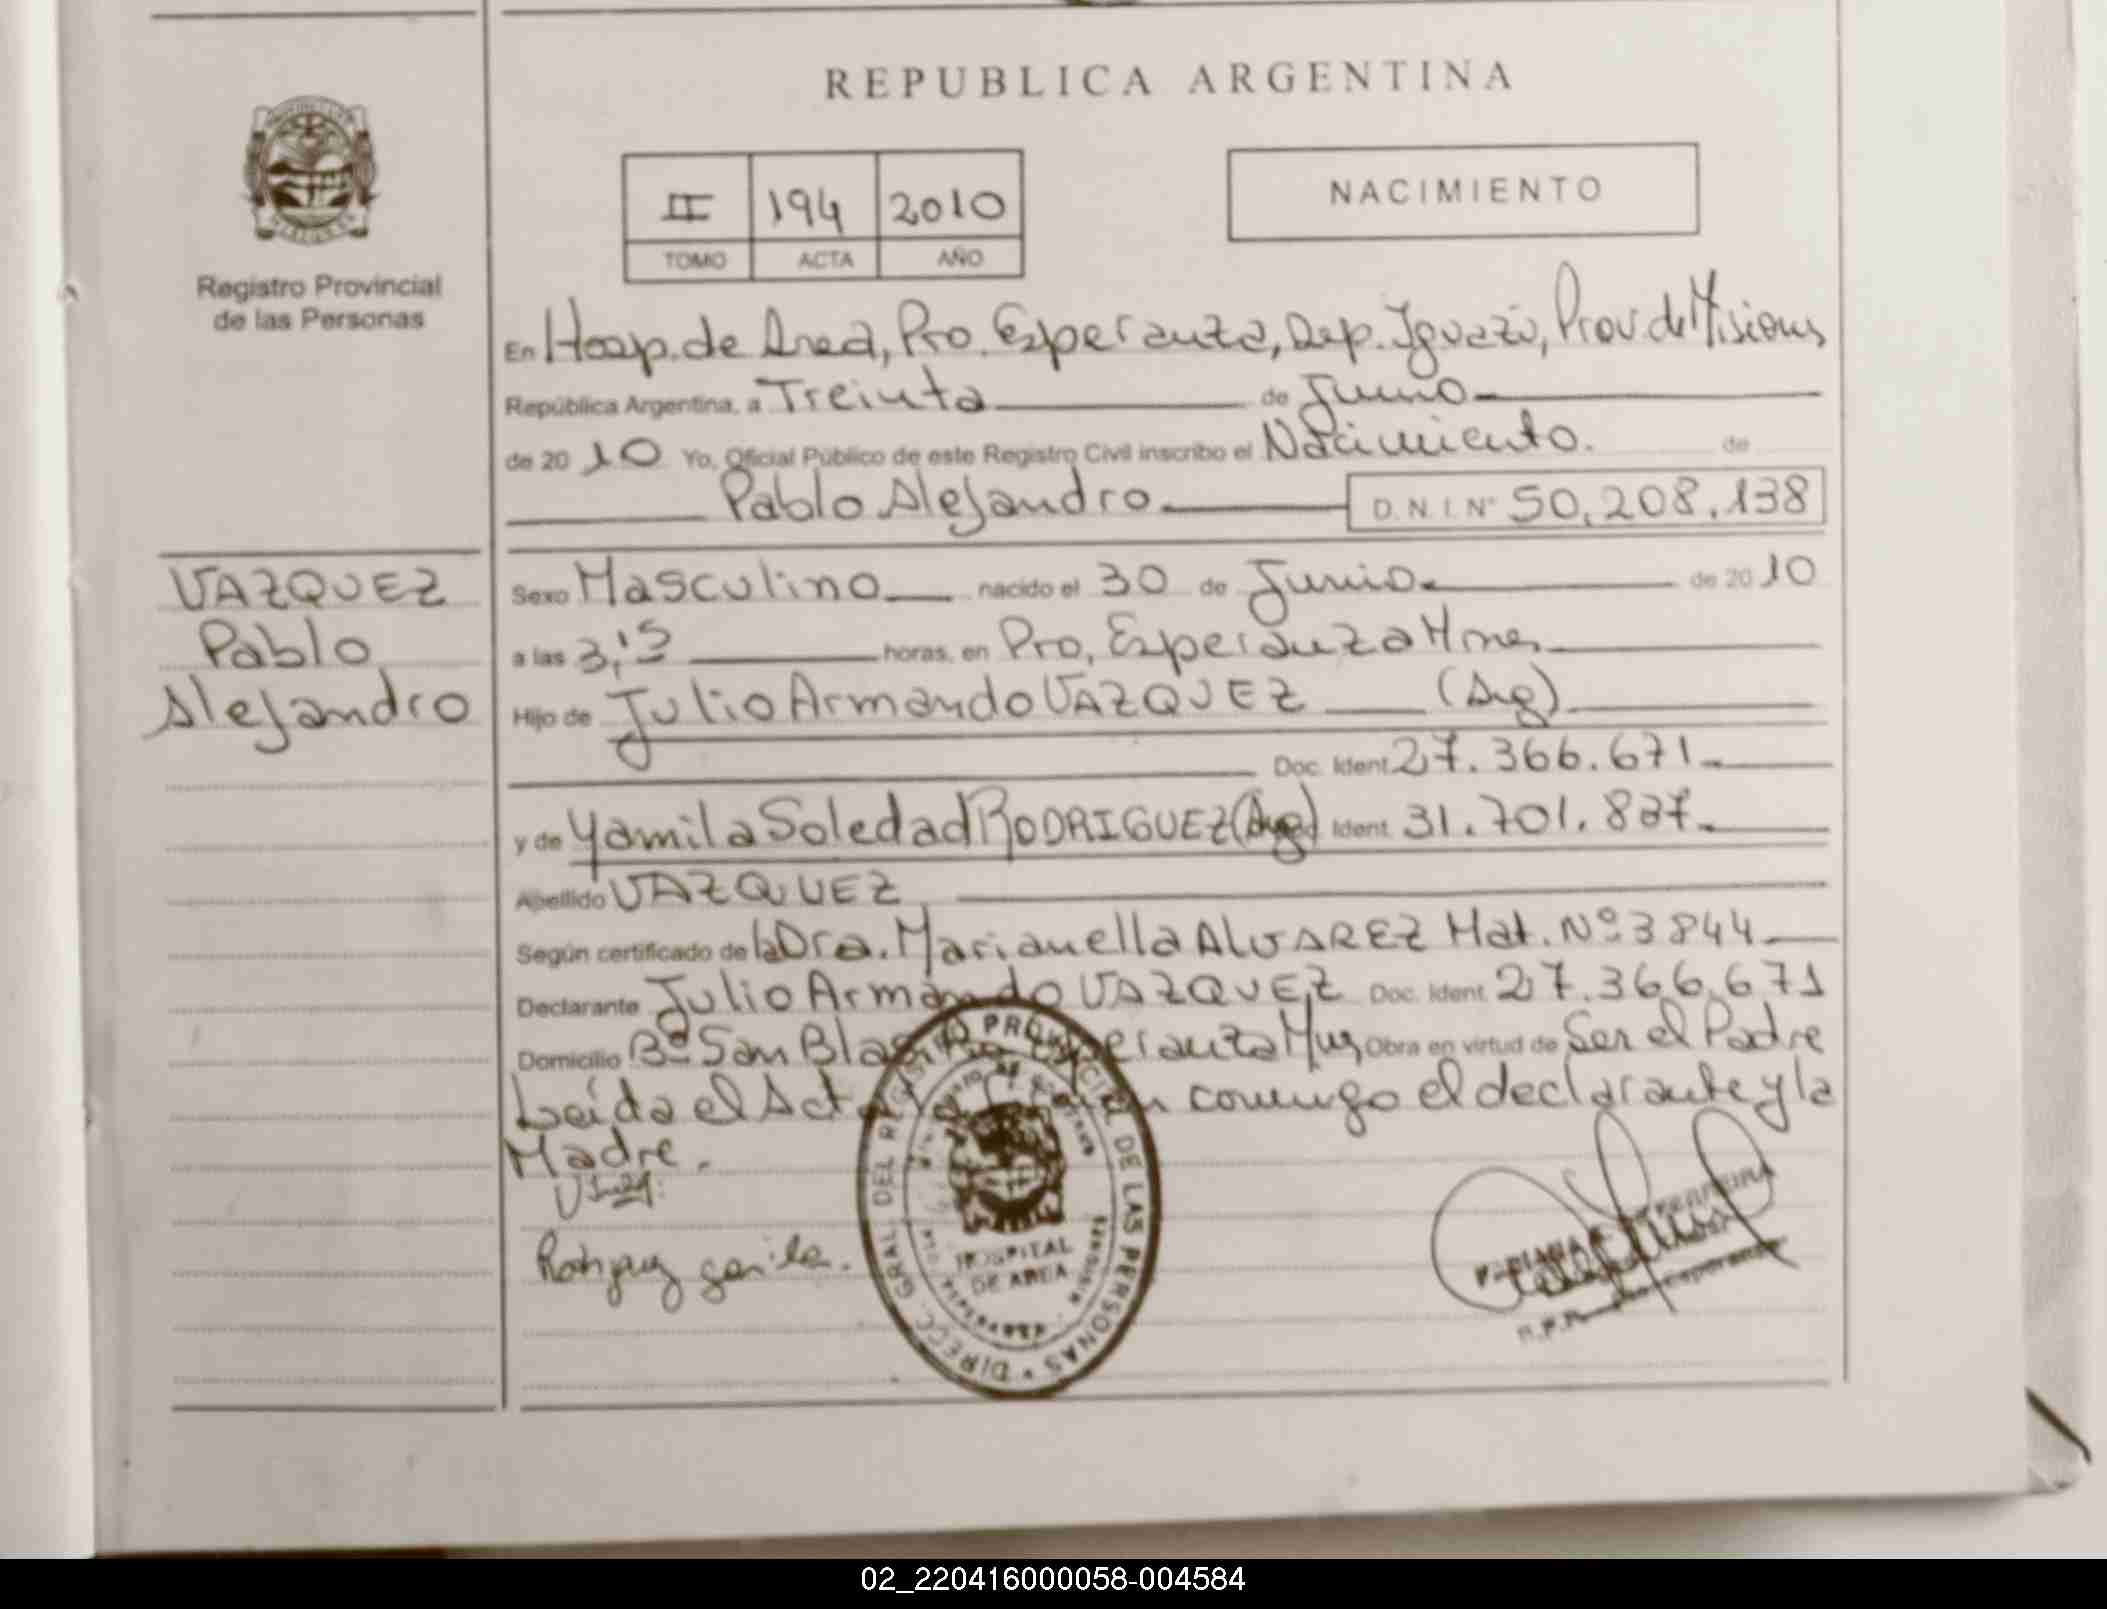 REPUBLICA ARGENTINA
Registro Provincial
de las Personas
II 194 2010
TOMO ACTA AÑO
NACIMIENTO
En Hosp. de Area, Pto. Esperanza, Dep. Iguazú, Prov. de Misiones
República Argentina, a Treinta de Junio
de 20 10 Yo, Oficial Público de este Registro Civil inscribo el Nacimiento. de
Pablo Alejandro D.N.I. Nº 50.208.138
VAZQUEZ
Pablo
Alejandro
Sexo Masculino nacido el 30 de Junio de 20 10
a las 3,15 horas, en Pto, Esperanza Mnes
Hijo de Julio Armando VAZQUEZ (Arg)
Doc. Ident. 27.366.671
y de Yamila Soledad RODRIGUEZ (Arg) Ident. 31.701.827
Apellido VAZQUEZ
Según certificado de la Dra. Marianella ALVAREZ Mat. Nº 3844
Declarante Julio Armando VAZQUEZ Doc. Ident. 27.366.671
Domicilio Bº San Blas Pto Esperanza Mnes Obra en virtud de Ser el Padre
Leída el Acta conmigo el declarante y la
Madre.
DIRECC. GRAL. DEL REGISTRO PROVINCIAL DE LAS PERSONAS
HOSPITAL
DE AREA
02_220416000058-004584